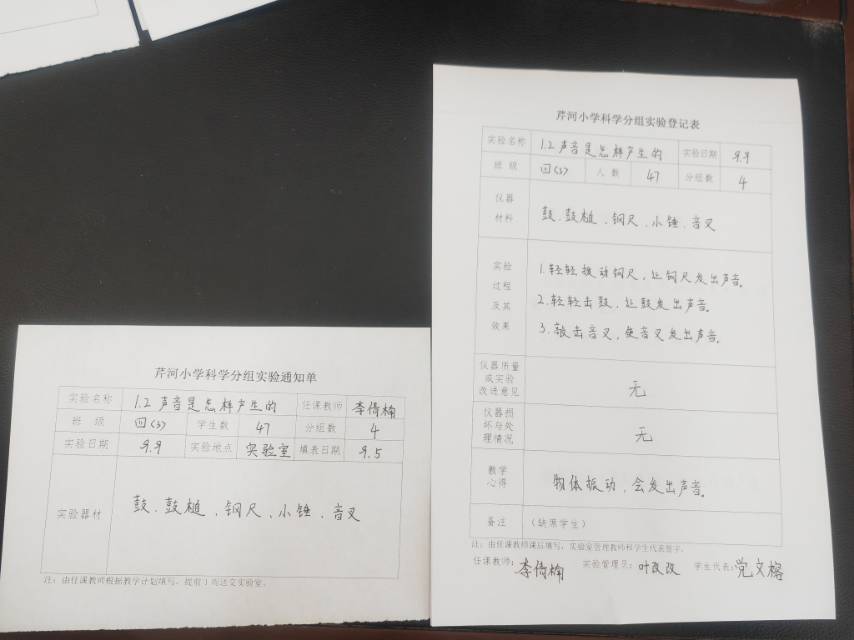 芹河小学科学分组实验通知单
实验名称 1.2 声音是怎样产生的 任课教师 李倩楠
班 级 四(3) 学生数 47 分组数 4
实验日期 9.9 实验地点 实验室 填表日期 9.5
实验器材 鼓、鼓槌、钢尺、小锤、音叉
注:由任课教师根据教学计划填写,提前1周送交实验室。
芹河小学科学分组实验登记表
实验名称 1.2 声音是怎样产生的 实验日期 9.9
班 级 四(3) 人 数 47 分组数 4
仪器
材料
鼓、鼓槌、钢尺、小锤、音叉
实验
过程
及其
效果
1.轻轻拨动钢尺,让钢尺发出声音。
2.轻轻击鼓,让鼓发出声音。
3.敲击音叉,使音叉发出声音。
仪器质量
或实验
改进意见
无
仪器损
坏与处
理情况
无
教学
心得
物体振动,会发出声音。
备注 (缺席学生)
注:由任课教师课后填写,实验室管理教师和学生代表签字。
任课教师:李倩楠 实验管理员:叶改改 学生代表:党文榕